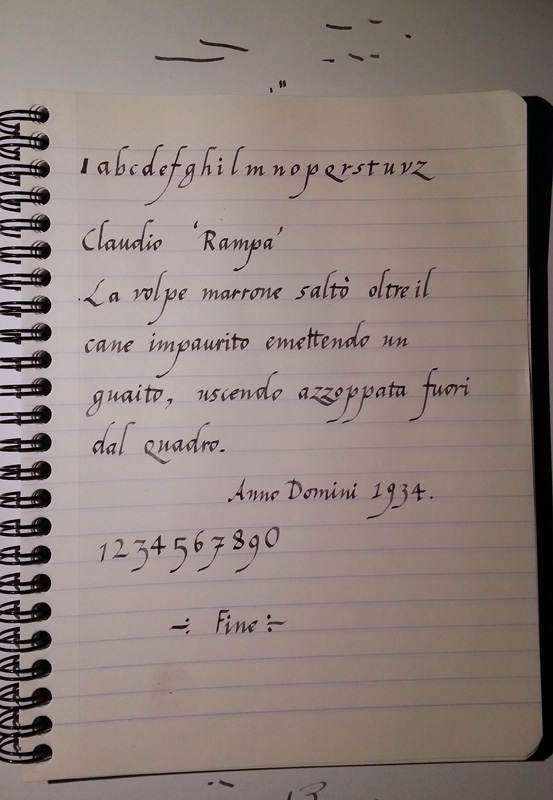 a b c d e f g h i l m n o p q r s t u v z
Claudio 'Rampa'
La volpe marrone saltò oltre il
cane impaurito emettendo un
guaito, uscendo azzoppata fuori
dal quadro.
Anno Domini 1934.
1 2 3 4 5 6 7 8 9 0
÷ Fine ÷